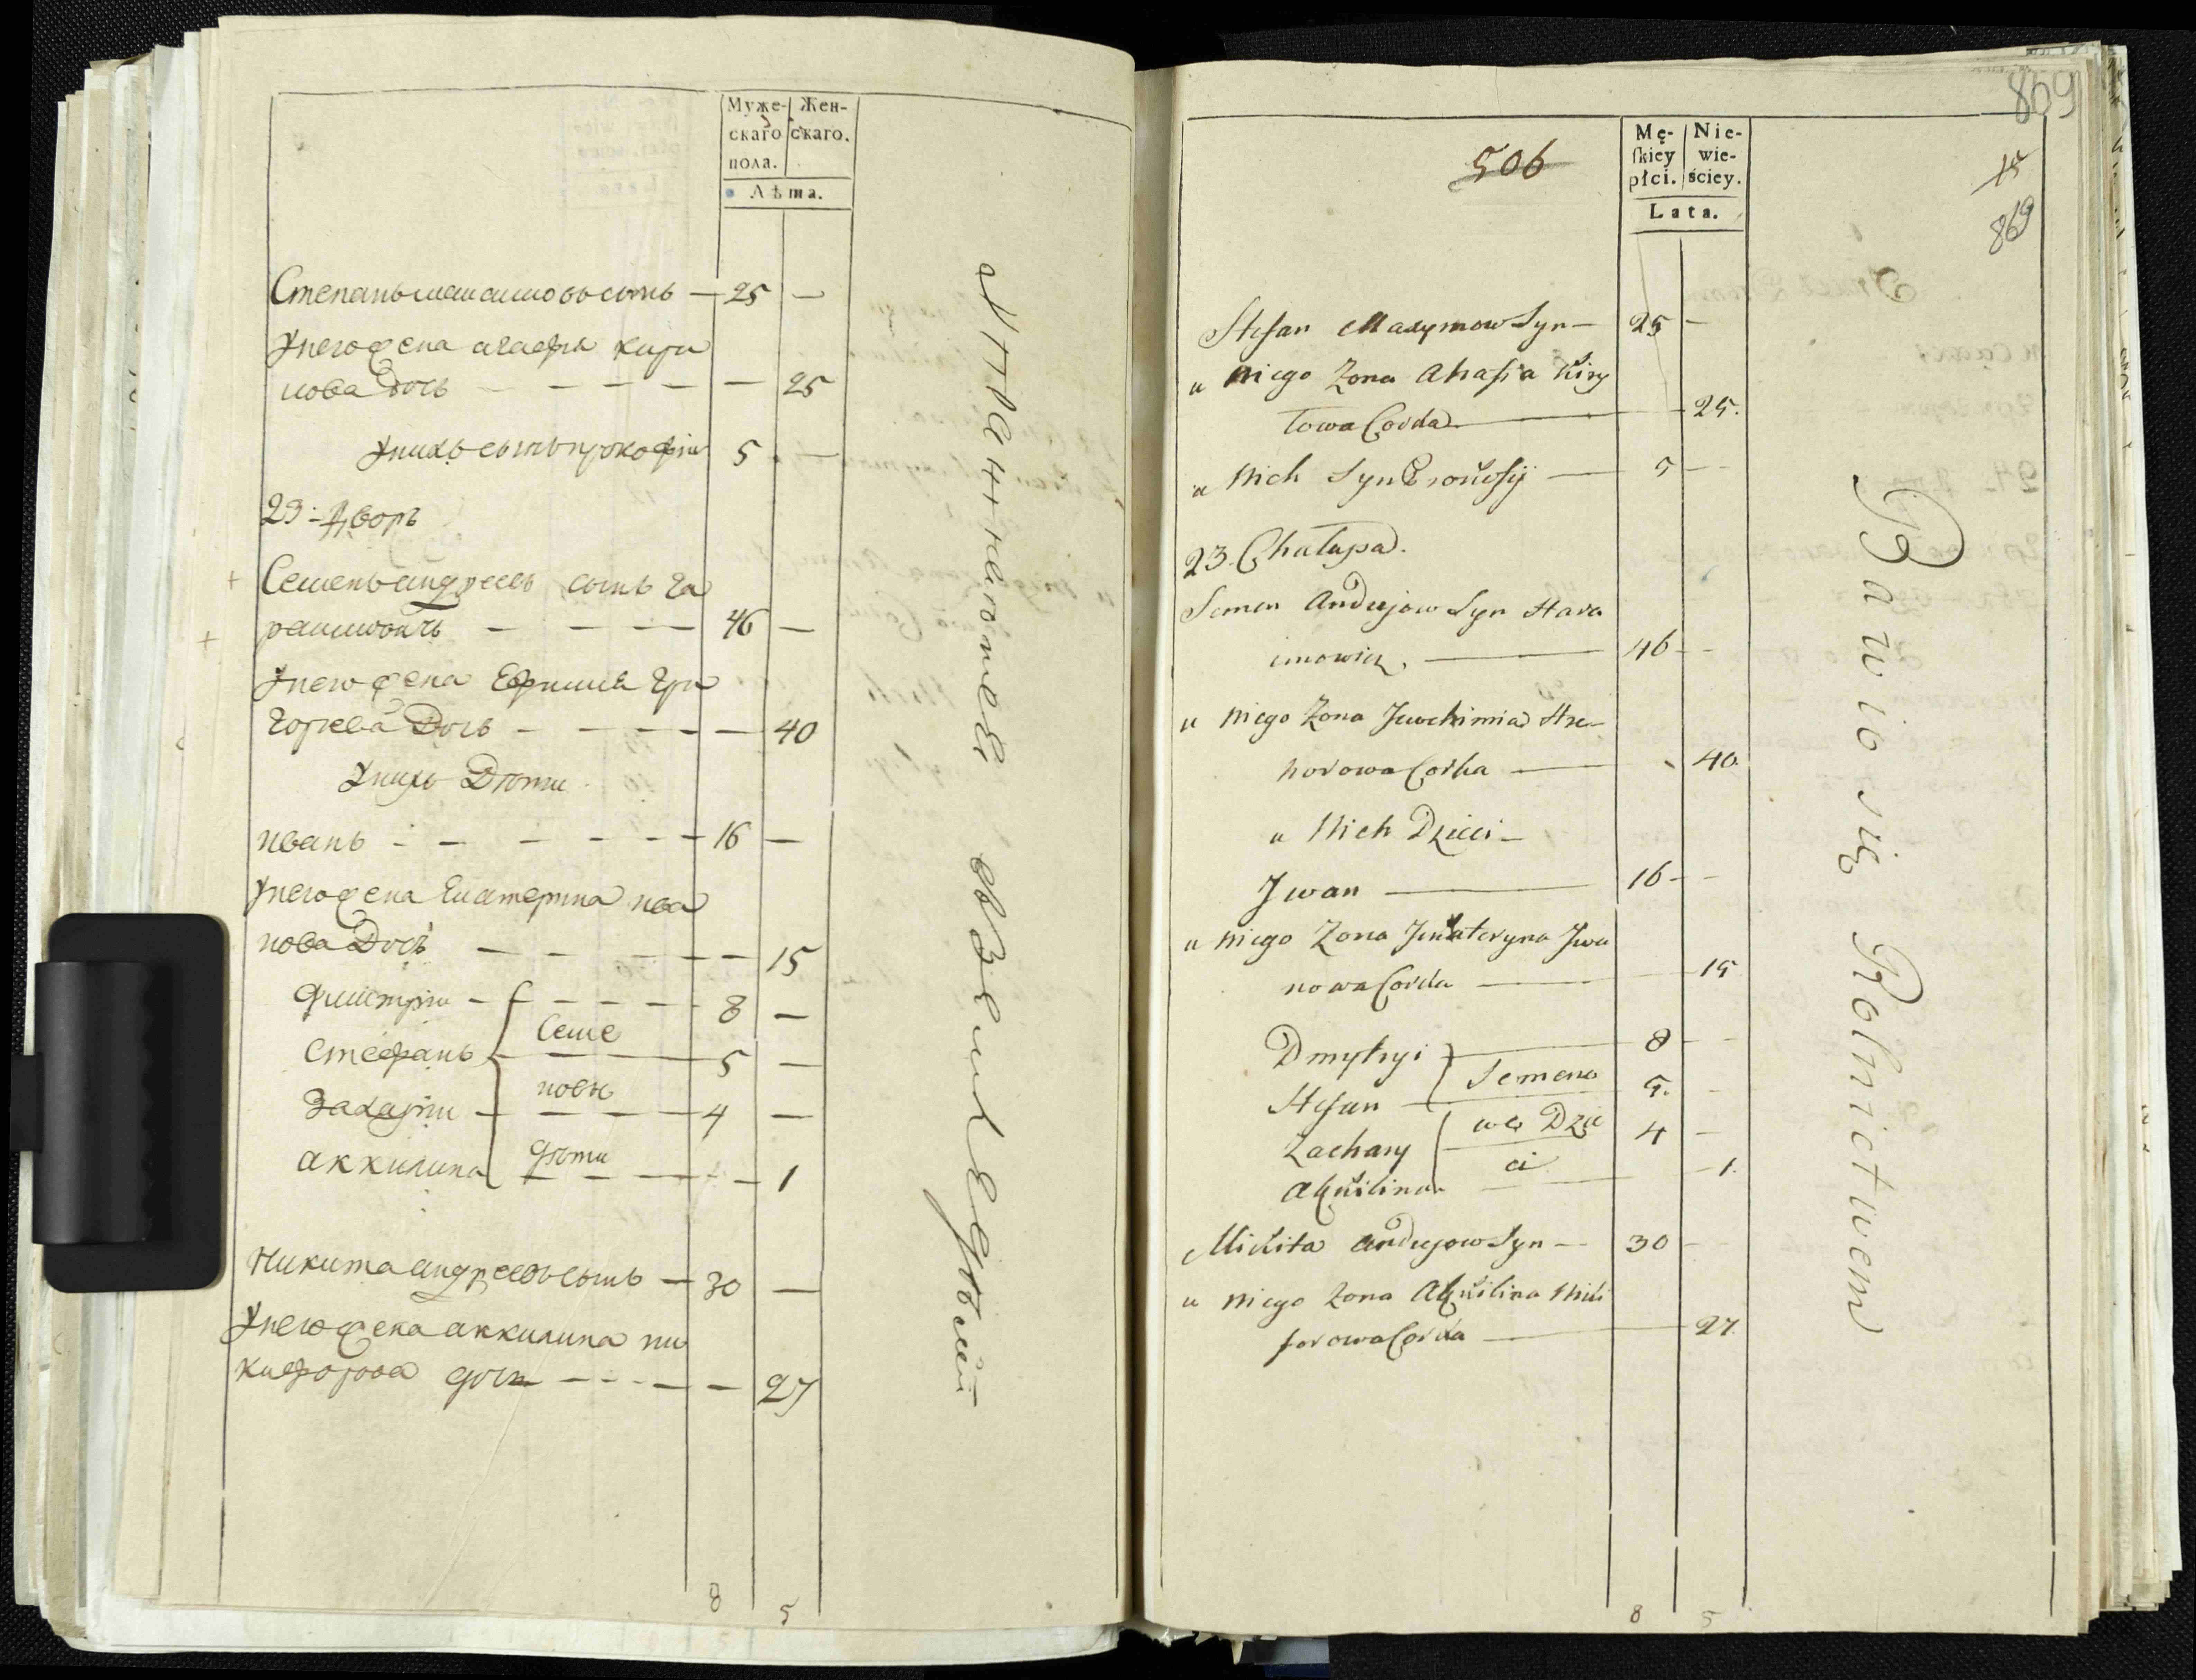 Муже-
скаго
пола.
Жен-
скаго.
Лѣта.
Степанъ Максимовъ сынъ — 25 —
У него жена Агафья Кири
лова дочь — 25
У нихъ сынъ Прокофiи 5 —
23 - Дворъ
Семенъ Андреевъ сынъ Га
расимовичъ — 46 —
У него жена Ефимия Гри
горiева Дочь — 40
У нихъ Дѣти
Иванъ — 16 —
У него жена Екатерина Ива
нова Дочь — 15
Дмитрiи — 8 —
Стефанъ Семе 5 —
Захарiи новы 4 —
Аккилина дѣти — 1
Никита Андреевъ сынъ — 30 —
У него жена Аккилина Ни
кифорова дочь — 27
8 5
Упражняются въ Земледѣлiи
869
15
869
506
Mę-
skiey
płci.
Nie-
wie-
ściey.
Lata.
Stefan Maxymow Syn — 25 —
u niego Zona Ahafia Kiry
łowa Corka — 25.
u Nich Syn 5 —
23. Chałupa.
Semen Andrejow Syn Hara
imowicz. — 46 —
u niego Zona Jewchimia Hre-
horowa Corka — 40.
u Nich Dzieci —
Jwan — 16 —
u niego Zona Jekateryna Jwa
nowa Corka — 15
Dmytryi — 8 —
Stefan Semeno 5. —
Zachary we Dzie 4 —
Akuilina ci — 1.
Mikita Andrejow Syn — 30 —
u niego Zona Akuilina Niki
forowa Corka — 27.
8 5
Bawio się Rolnictwem